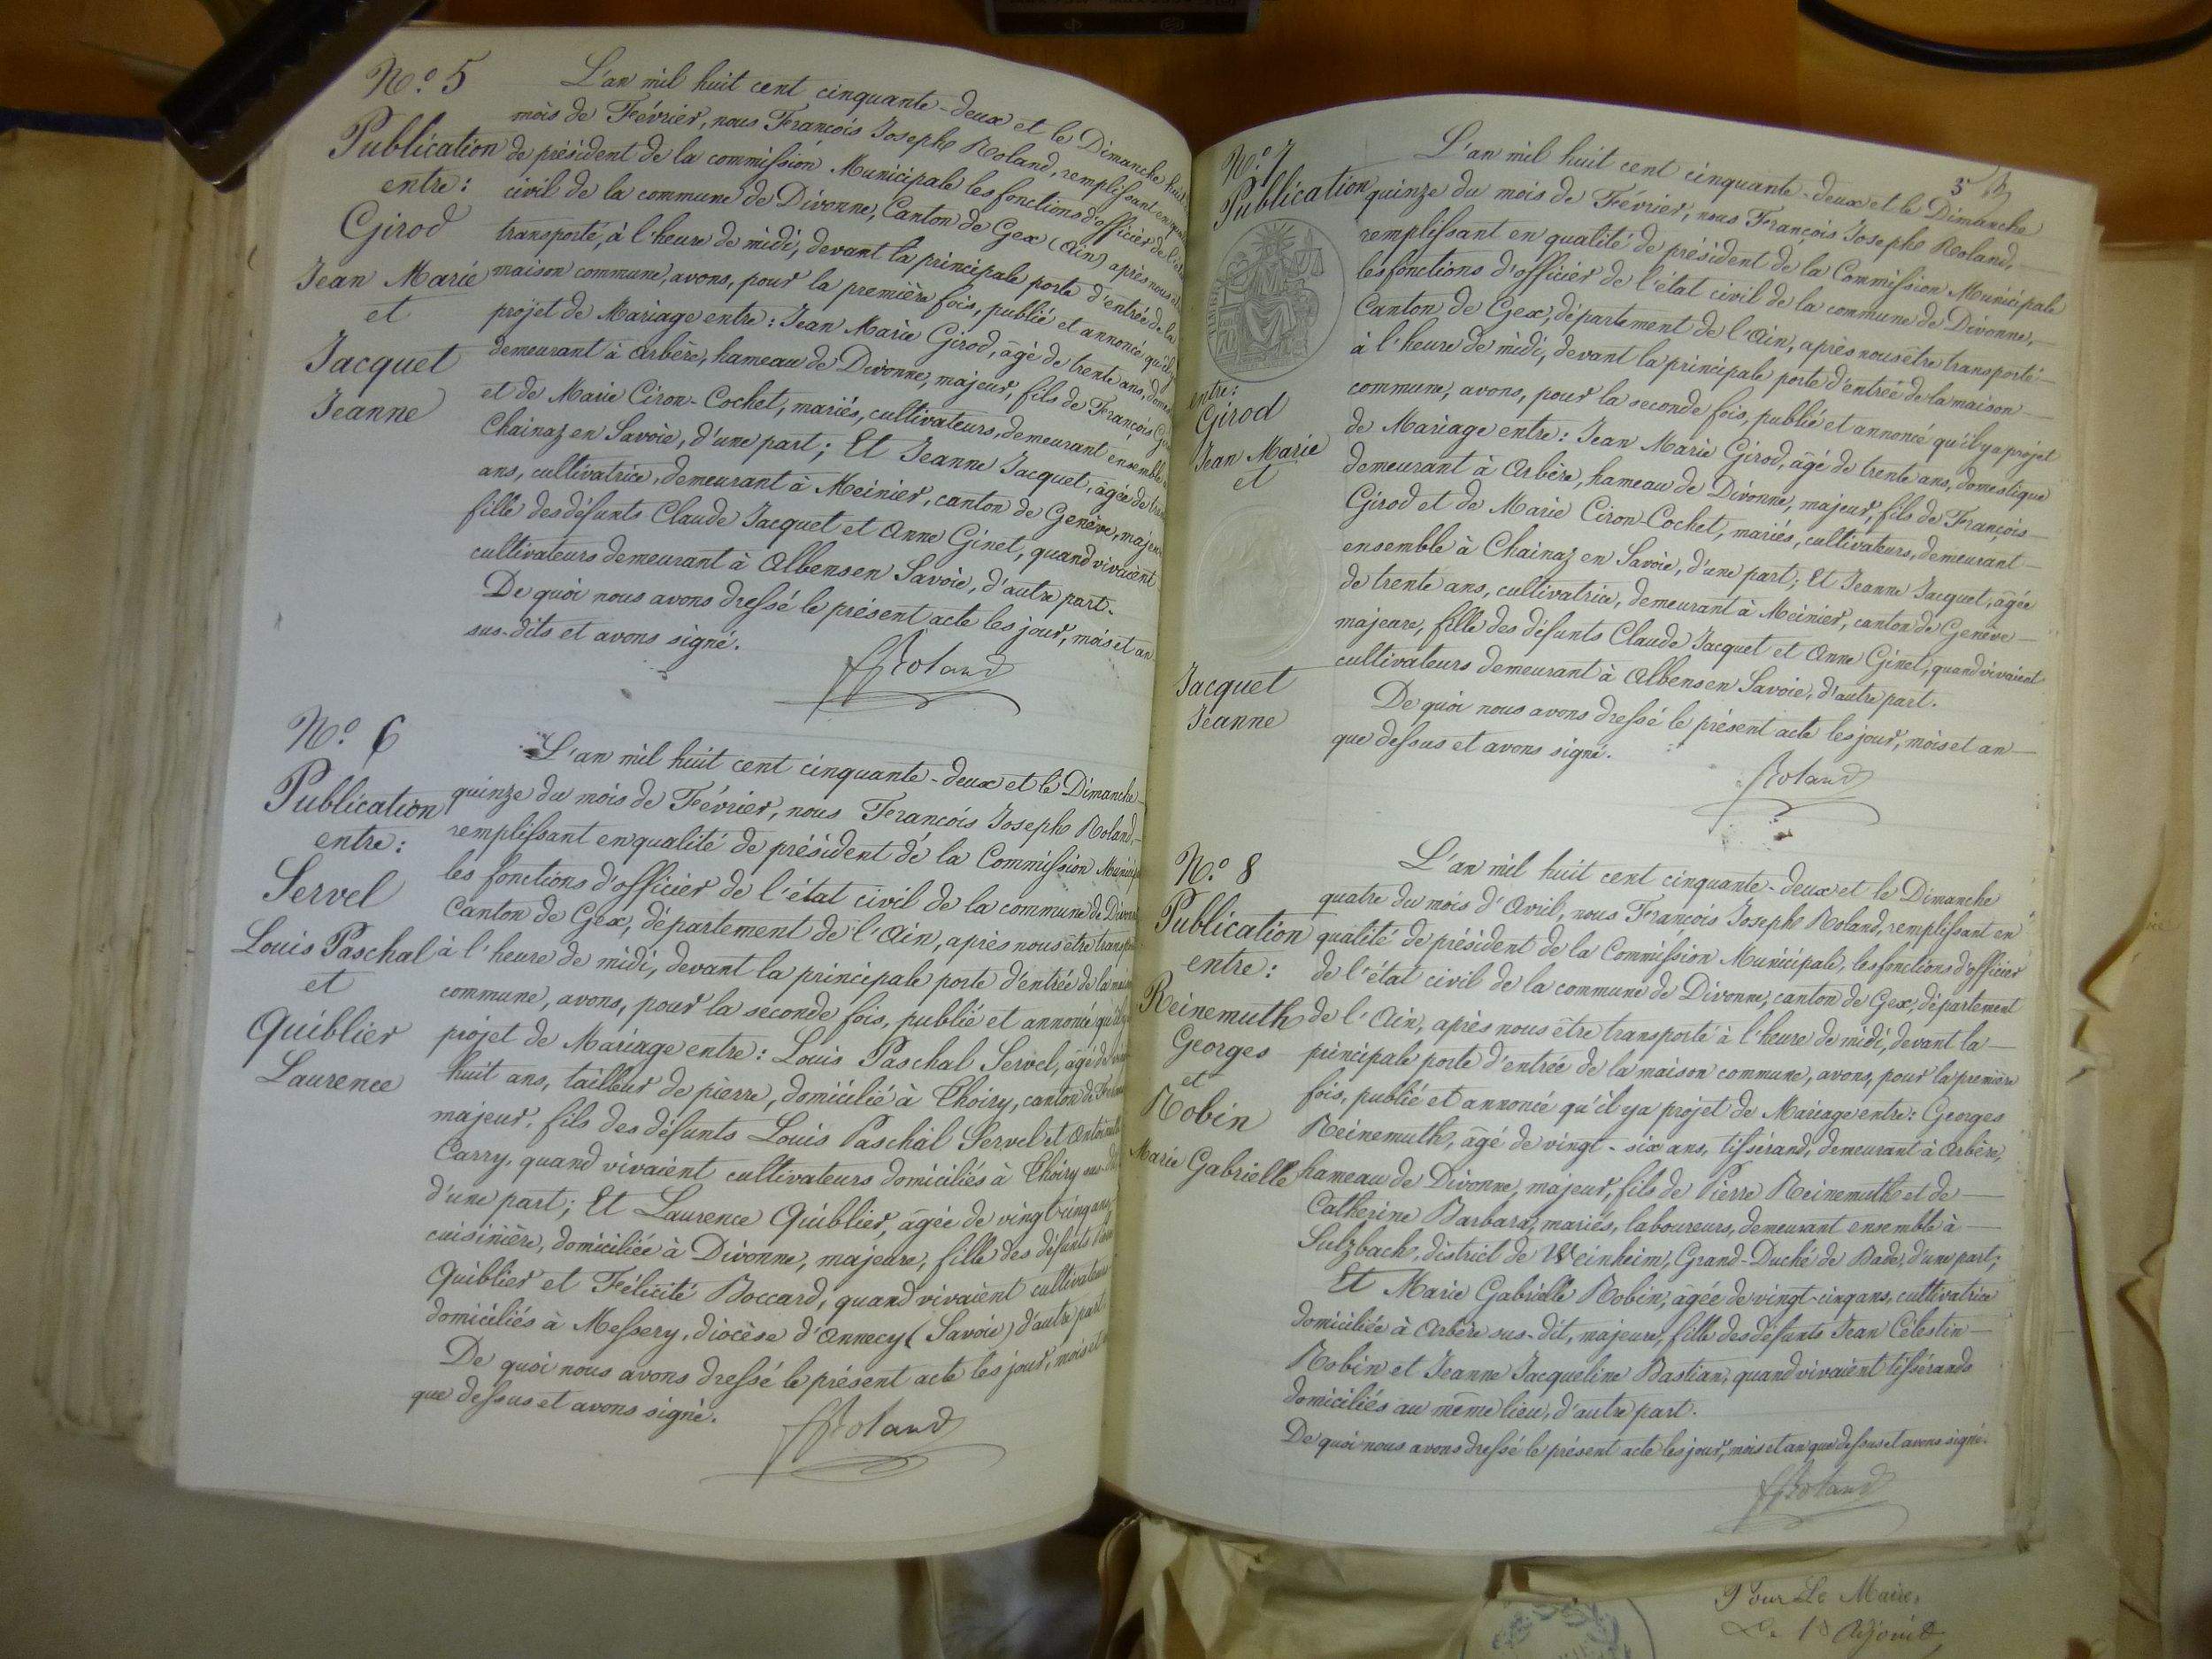 N.o 5
Publication
entre :
Girod
Jean Marie
et
Jacquet
Jeanne
L'an mil huit cent cinquante-deux et le Dimanche huit
mois de Février, nous François Joseph Roland, remplissant en
de président de la commission Municipale les fonctions d'officier de
civil de la commune de Divonne, Canton de Gex (Ain) après nous
transporté, à l'heure de midi, devant la principale porte d'entrée de la
maison commune, avons, pour la première fois, publié et annoncé qu'il
projet de Mariage entre : Jean Marie Girod, âgé de trente ans,
demeurant à Arbère, hameau de Divonne, majeur, fils de François
et de Marie Ciron-Cochet, mariés, cultivateurs, demeurant ensemble
Chainaz en Savoie, d'une part ; Et Jeanne Jacquet, âgée de
ans, cultivatrice, demeurant à Meinier, canton de Genève,
fille des défunts Claude Jacquet et Anne Ginet, quand vivaient
cultivateurs demeurant à Albens en Savoie, d'autre part.
De quoi nous avons dressé le présent acte les jour, mois et an
sus-dits et avons signé.
FJRoland
N.o 6
Publication
entre :
Servel
Louis Paschal
et
Quiblier
Laurence
L'an mil huit cent cinquante-deux et le Dimanche
quinze du mois de Février, nous François Joseph Roland,
remplissant en qualité de président de la Commission
les fonctions d'officier de l'état civil de la commune de
Canton de Gex, département de l'Ain, après nous être
à l'heure de midi, devant la principale porte d'entrée de la
commune, avons, pour la seconde fois, publié et annoncé
projet de Mariage entre : Louis Paschal Servel, âgé de
huit ans, tailleur de pierre, domicilié à Thoiry, canton de
majeur, fils des défunts Louis Paschal Servel et
Carry, quand vivaient cultivateurs domiciliés à Thoiry
d'une part ; Et Laurence Quiblier, âgée de vingt cinq ans,
cuisinière, domiciliée à Divonne, majeure, fille des défunts
Quiblier et Félicité Boccard, quand vivaient cultivateurs
domiciliés à Messery, diocèse d'Annecy (Savoie) d'autre part.
De quoi nous avons dressé le présent acte les jour, mois et
que dessus et avons signé.
FJRoland
5
N.o 7
Publication
entre :
Girod
Jean Marie
et
Jacquet
Jeanne
L'an mil huit cent cinquante-deux et le Dimanche
quinze du mois de Février, nous François Joseph Roland,
remplissant en qualité de président de la Commission Municipale
les fonctions d'officier de l'état civil de la commune de Divonne,
Canton de Gex, département de l'Ain, après nous être transporté
à l'heure de midi, devant la principale porte d'entrée de la maison
commune, avons, pour la seconde fois, publié et annoncé qu'il y a projet
de Mariage entre : Jean Marie Girod, âgé de trente ans, domestique
demeurant à Arbère, hameau de Divonne, majeur, fils de François
Girod et de Marie Ciron-Cochet, mariés, cultivateurs, demeurant
ensemble à Chainaz en Savoie, d'une part ; Et Jeanne Jacquet, âgée
de trente ans, cultivatrice, demeurant à Meinier, canton de Genève
majeure, fille des défunts Claude Jacquet et Anne Ginet, quand vivaient
cultivateurs demeurant à Albens en Savoie, d'autre part.
De quoi nous avons dressé le présent acte les jour, mois et an
que dessus et avons signé.
FJRoland
N.o 8
Publication
entre :
Reinemuth
Georges
et
Robin
Marie Gabrielle
L'an mil huit cent cinquante-deux et le Dimanche
quatre du mois d'Avril, nous François Joseph Roland, remplissant en
qualité de président de la Commission Municipale, les fonctions d'officier
de l'état civil de la commune de Divonne, canton de Gex, département
de l'Ain, après nous être transporté à l'heure de midi, devant la
principale porte d'entrée de la maison commune, avons, pour la première
fois, publié et annoncé qu'il y a projet de Mariage entre : Georges
Reinemuth, âgé de vingt-six ans, tissérand, demeurant à Arbère,
hameau de Divonne, majeur, fils de Pierre Reinemuth et de
Catherine Barbara, mariés, laboureurs, demeurant ensemble à
Sulzbach, district de Weinheim, Grand-Duché de Bade, d'une part ;
Et Marie Gabrielle Robin, âgée de vingt-cinq ans, cultivatrice
domiciliée à Arbère sus-dit, majeure, fille des défunts Jean Célestin
Robin et Jeanne Jacqueline Bastian, quand vivaient tissérands
domiciliés au même lieu, d'autre part.
De quoi nous avons dressé le présent acte les jour, mois et an que dessus et avons signé.
FJRoland
Pour Le Maire,
Le 1er Adjoint